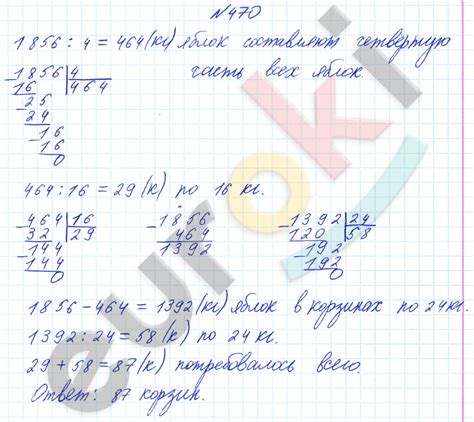 №470
1856 : 4 = 464 (кг) яблок составляют четвертую
часть всех яблок.
-1856|4
16 |464
-25
24
-16
16
0
464 : 16 = 29 (к) по 16 кг.
-464|16
32 |29
-144
144
0
-1856
464
1392
-1392|24
120 |58
-192
192
0
1856 - 464 = 1392 (кг) яблок в корзинах по 24 кг.
1392 : 24 = 58 (к) по 24 кг.
29 + 58 = 87 (к) потребовалось всего.
Ответ: 87 корзин.
euroki